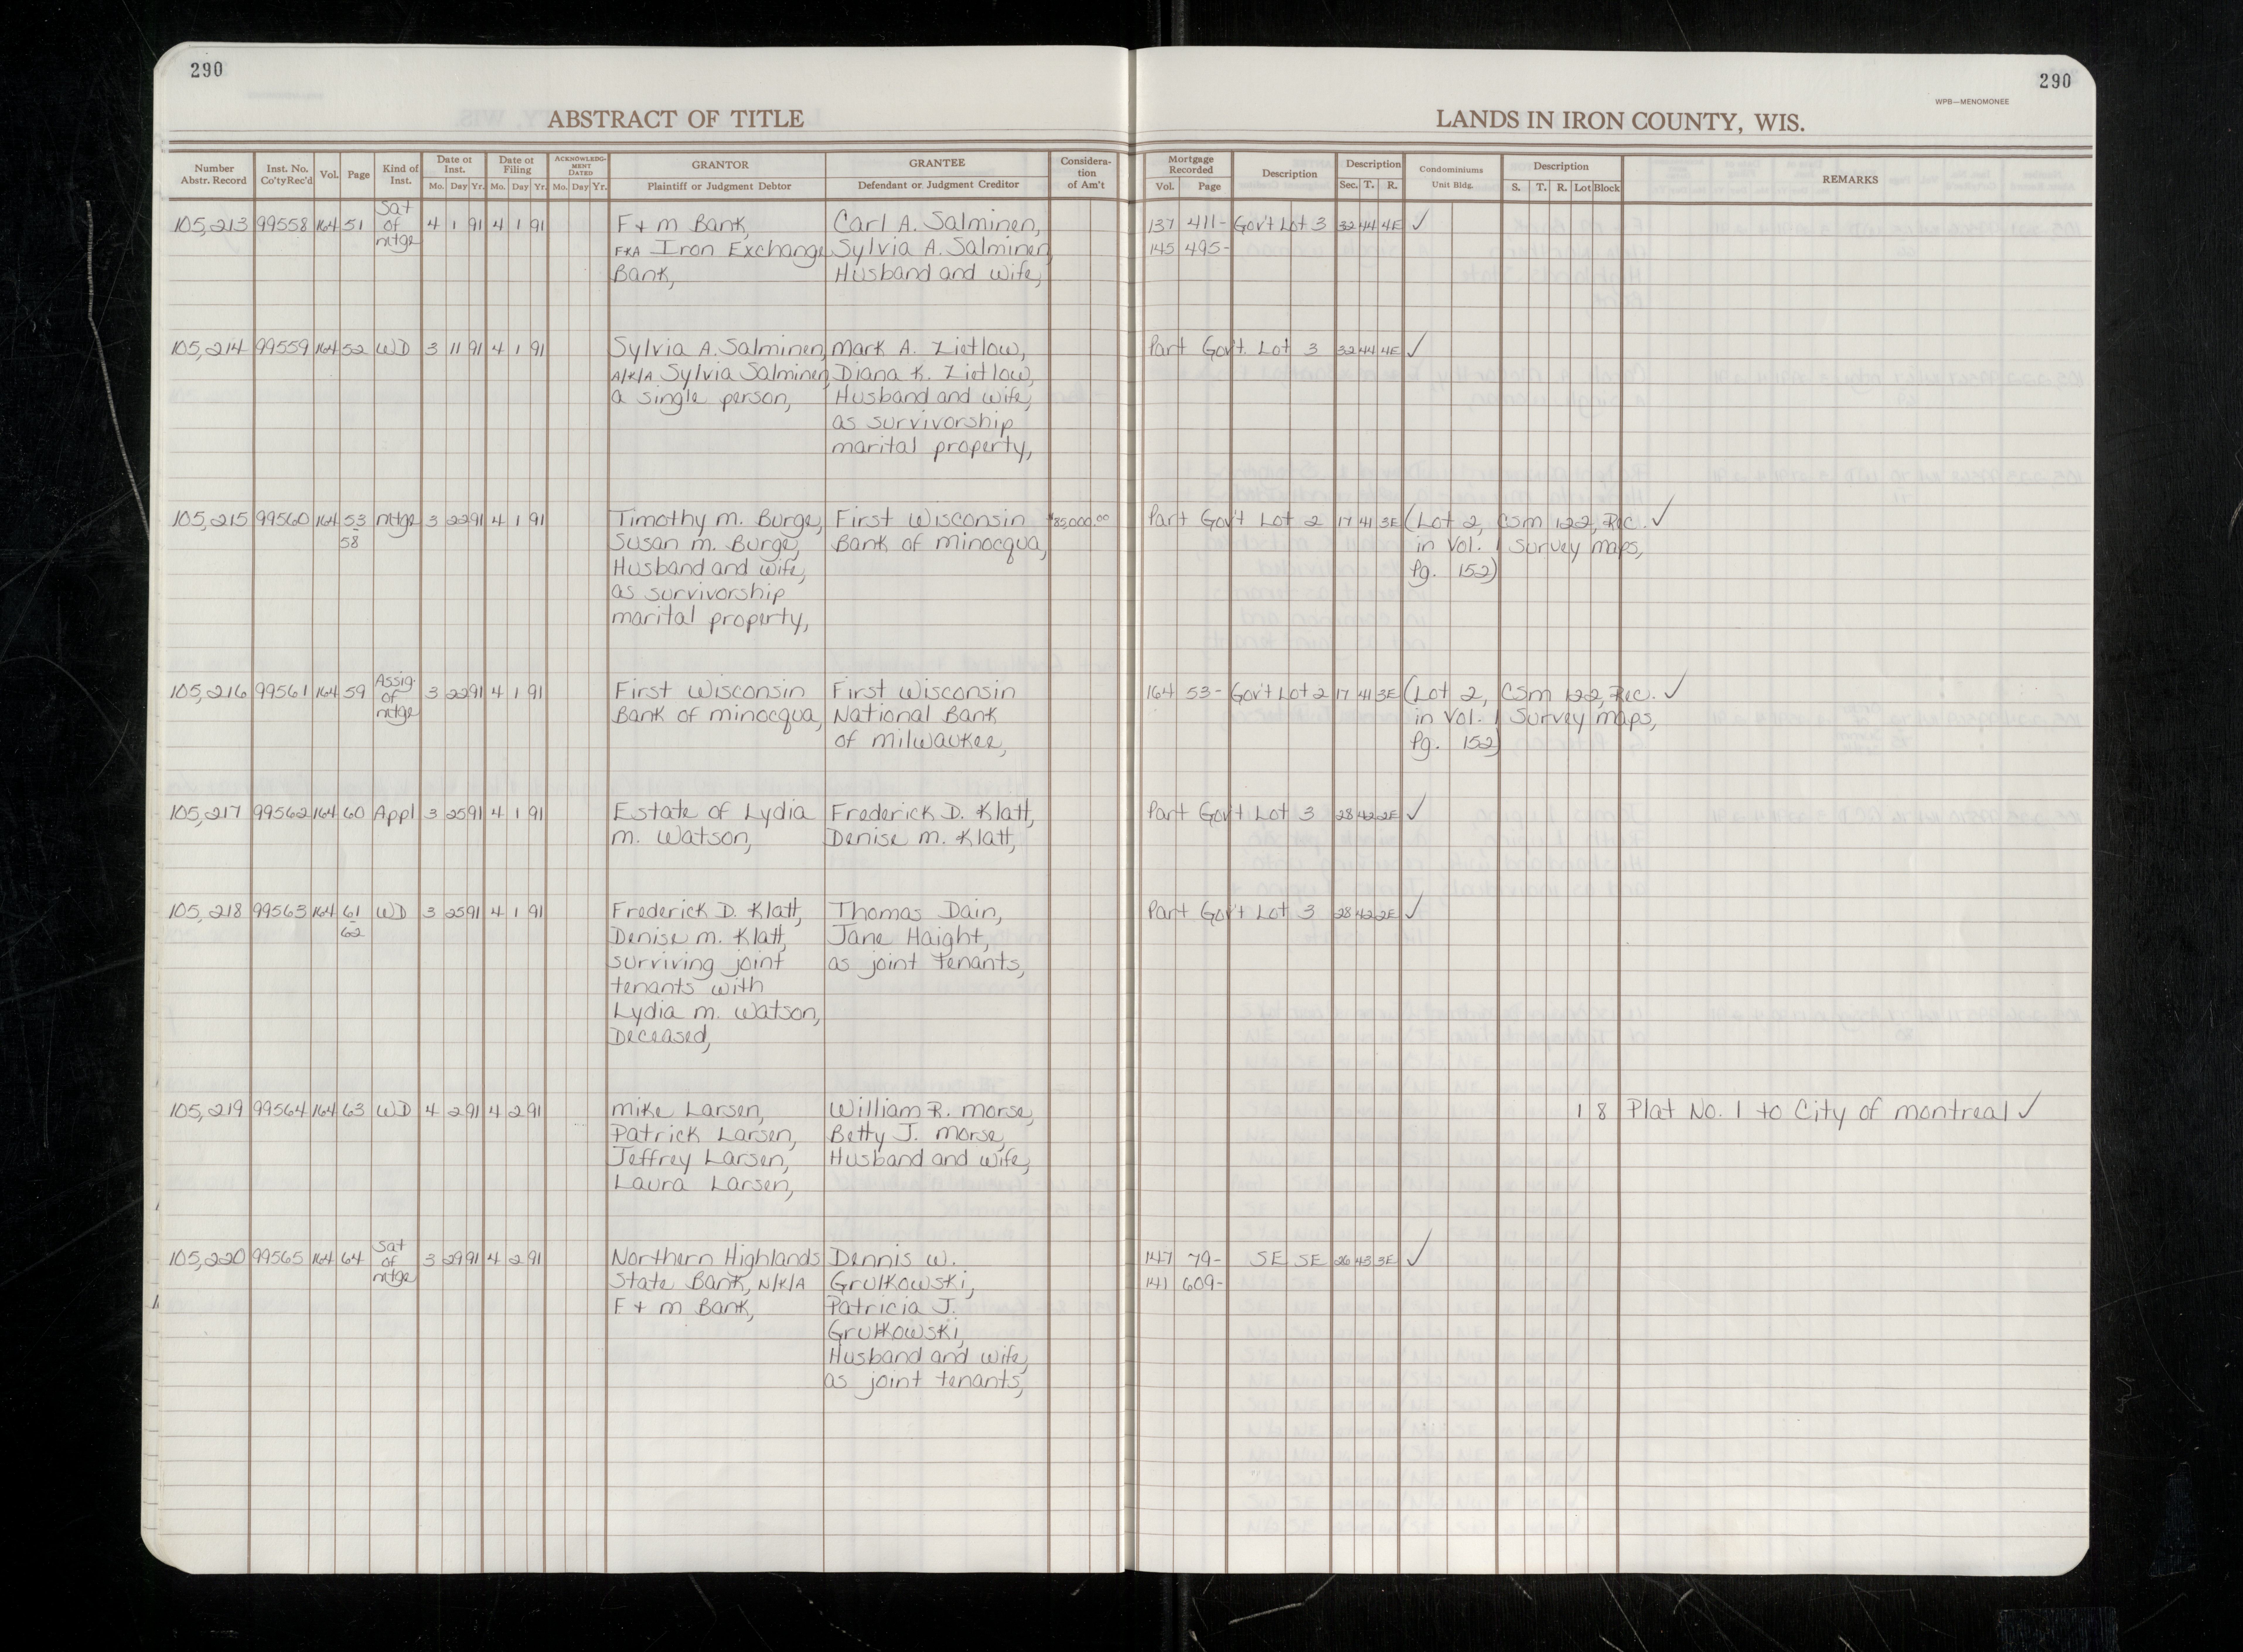 290
290
WPB—MENOMONEE
ABSTRACT OF TITLE
LANDS IN IRON COUNTY, WIS.
Number Abstr. Record | Inst. No. Co'tyRec'd | Vol. | Page | Kind of Inst. | Date of Inst. Mo. Day Yr. | Date of Filing Mo. Day Yr. | ACKNOWLEDGMENT DATED Mo. Day Yr. | GRANTOR Plaintiff or Judgment Debtor | GRANTEE Defendant or Judgment Creditor | Consideration of Am't | Mortgage Recorded Vol. Page | Description | Description Sec. T. R. | Condominiums Unit Bldg. | Description S. T. R. Lot Block | REMARKS
105,213 99558 164 51 Sat of mtge 4 1 91 4 1 91 F & M Bank, Carl A. Salminen, 137 411- Gov't Lot 3 32 44 4E ✓
FKA Iron Exchange Sylvia A. Salminen 145 495-
Bank, Husband and wife,
105,214 99559 164 52 WD 3 11 91 4 1 91 Sylvia A. Salminen, Mark A. Zietlow, Part Gov't. Lot 3 32 44 4E ✓
A/K/A Sylvia Salminen, Diana K. Zietlow,
a single person, Husband and wife,
as survivorship
marital property,
105,215 99560 164 53-58 mtge 3 22 91 4 1 91 Timothy M. Burge, First Wisconsin $85,000.00 Part Gov't Lot 2 17 41 3E (Lot 2, CSM 122, Rec. ✓
Susan M. Burge, Bank of Minocqua, in Vol. 1 Survey Maps,
Husband and wife, Pg. 152)
as survivorship
marital property,
105,216 99561 164 59 Assig. of mtge 3 22 91 4 1 91 First Wisconsin First Wisconsin 164 53- Gov't Lot 2 17 41 3E (Lot 2, CSM 122, Rec. ✓
Bank of Minocqua, National Bank in Vol. 1 Survey Maps,
of Milwaukee, Pg. 152)
105,217 99562 164 60 Appl 3 25 91 4 1 91 Estate of Lydia Frederick D. Klatt, Part Gov't Lot 3 28 42 2E ✓
M. Watson, Denise M. Klatt,
105,218 99563 164 61-62 WD 3 25 91 4 1 91 Frederick D. Klatt, Thomas Dain, Part Gov't Lot 3 28 42 2E ✓
Denise M. Klatt, Jane Haight,
surviving joint as joint tenants,
tenants with
Lydia M. Watson,
Deceased,
105,219 99564 164 63 WD 4 2 91 4 2 91 Mike Larsen, William R. Morse, 1 8 Plat No. 1 to City of Montreal ✓
Patrick Larsen, Betty J. Morse,
Jeffrey Larsen, Husband and wife,
Laura Larsen,
105,220 99565 164 64 Sat of mtge 3 29 91 4 2 91 Northern Highlands Dennis W. 147 79- SE SE 26 43 3E ✓
State Bank, N/K/A Grulkowski, 141 609-
F & M Bank, Patricia J.
Grulkowski,
Husband and wife,
as joint tenants,